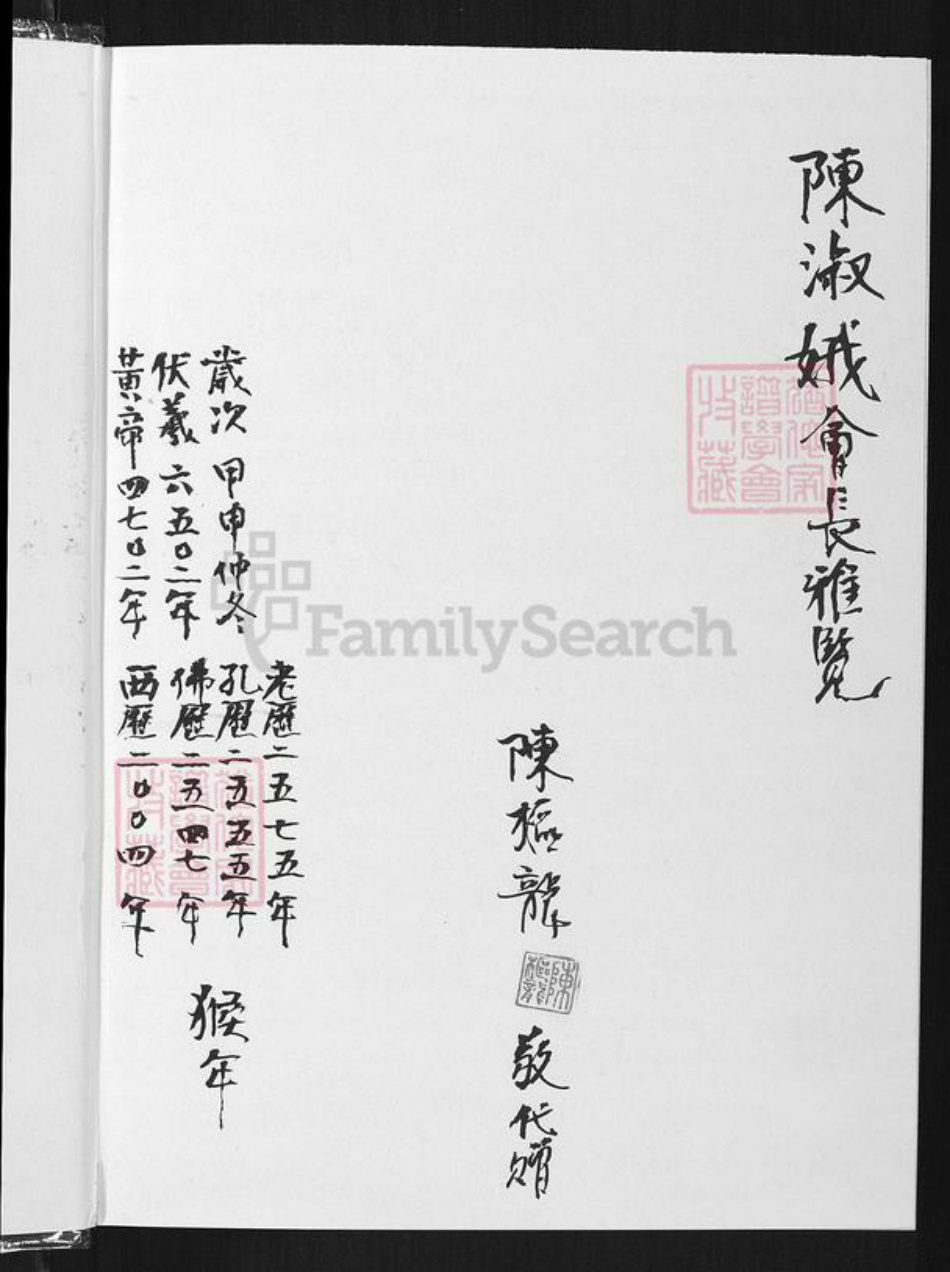 陳淑娥會長雅覽
譜學會
收藏
陳樞龍
敬代贈
老歷二五七五年
歲次甲申仲冬
孔歷二五五五年
伏羲六五〇二年
佛歷二五四七年
黃帝四七〇二年
西歷二〇〇四年
猴年
FamilySearch